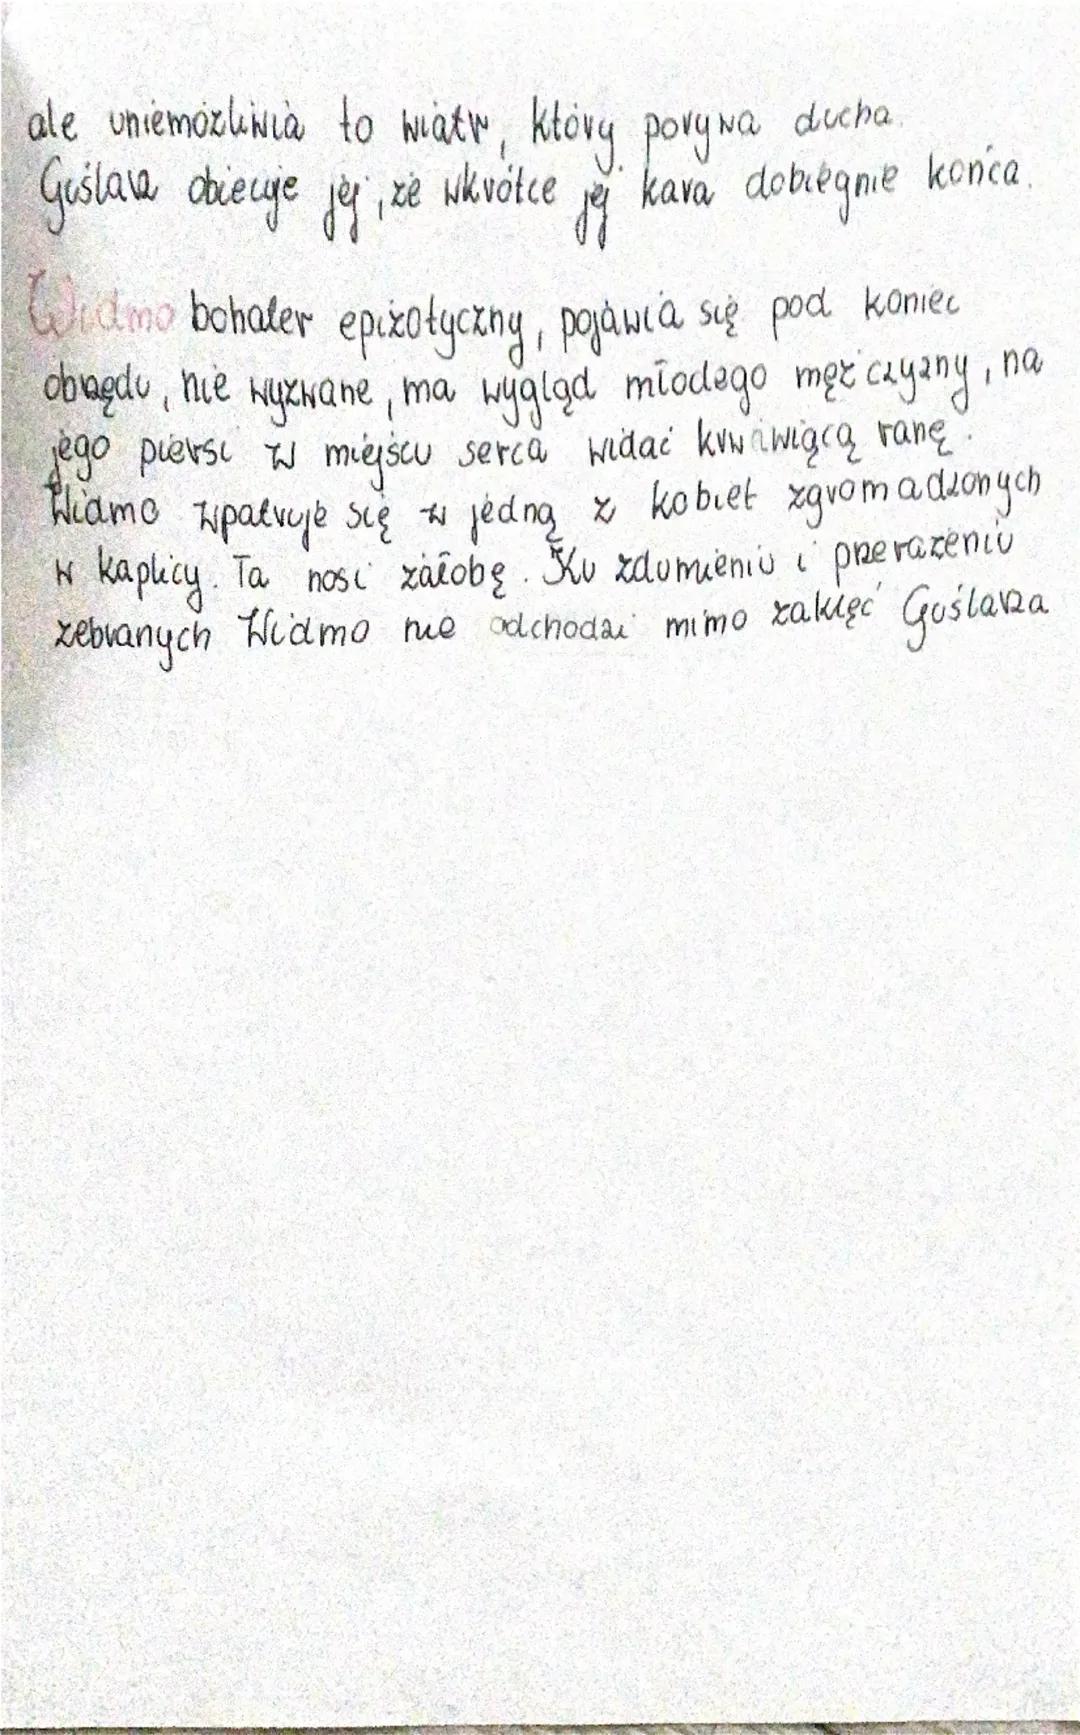 ale uniemożliwia to wiatr, który porywa ducha.
Guślarz obiecuje jej, że wkrótce jej kara dobiegnie końca.
Widmo bohater epizotyczny, pojawia się pod koniec
obrzędu, nie wyzwane, ma wygląd młodego mężczyzny, na
jego piersi w miejscu serca widać krwawiącą ranę.
Widmo wpatruje się w jedną z kobiet zgromadzonych
w kaplicy. Ta nosi żałobę. Ku zdumieniu i przerażeniu
zebranych Widmo nie odchodzi mimo zaklęć Guślarza